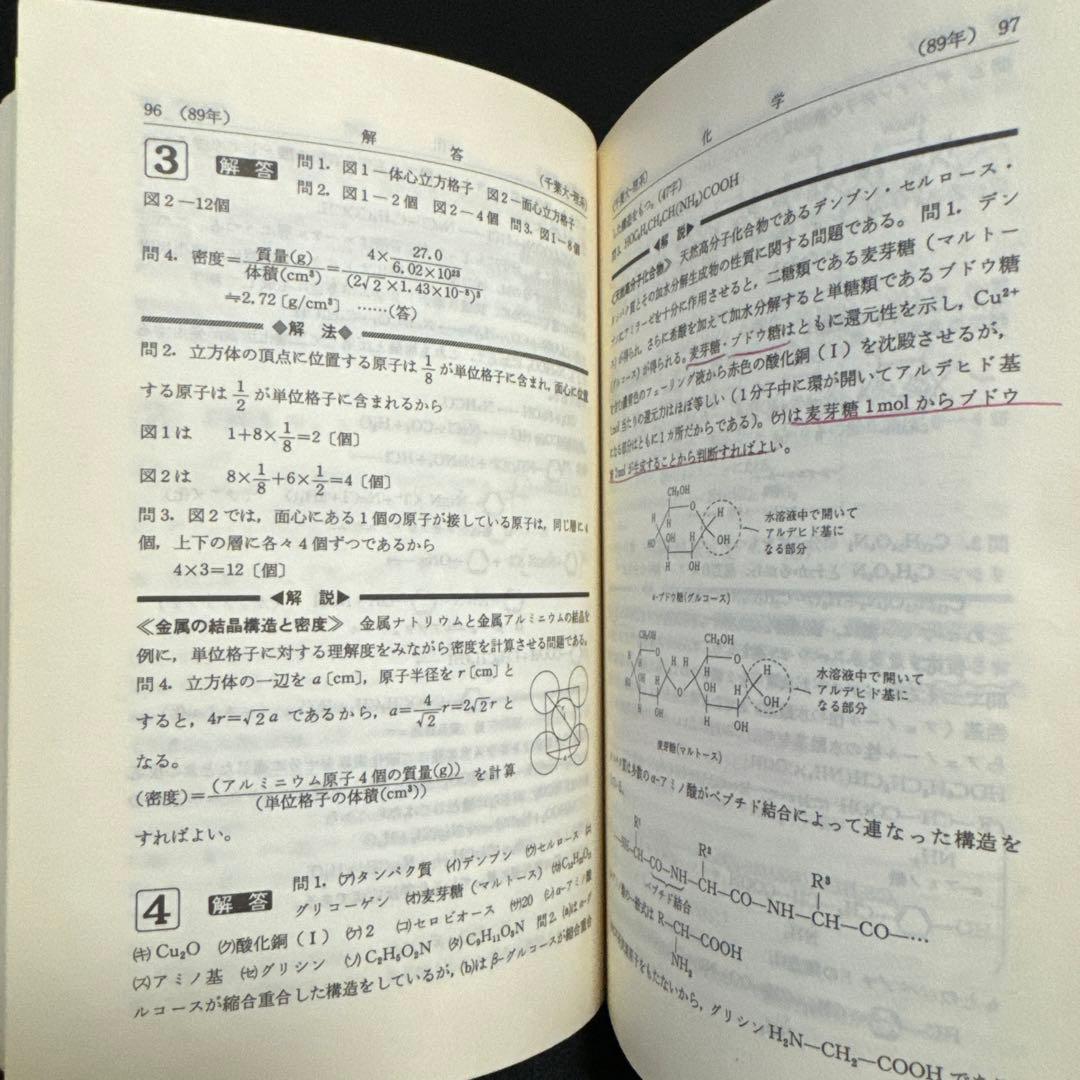 96 (89年)
解 答
(千葉大―理系)
3 解答 問1. 図1―体心立方格子 図2―面心立方格子
問2. 図1―2個 図2―4個 問3. 図1―8個
図2―12個
問4. 密度=質量(g)/体積(cm³)=4×27.0/6.02×10²³/(2√2×1.43×10⁻⁸)³
≒2.72〔g/cm³〕 ……(答)
◆解 法◆
問2. 立方体の頂点に位置する原子は1/8が単位格子に含まれ,面心に位置
する原子は1/2が単位格子に含まれるから
図1は 1+8×1/8=2〔個〕
図2は 8×1/8+6×1/2=4〔個〕
問3. 図2では,面心にある1個の原子が接している原子は,同じ層に4
個,上下の層に各々4個ずつであるから
4×3=12〔個〕
◀解 説▶
≪金属の結晶構造と密度≫ 金属ナトリウムと金属アルミニウムの結晶を
例に,単位格子に対する理解度をみながら密度を計算させる問題である。
問4. 立方体の一辺をa〔cm〕,原子半径をr〔cm〕と
すると,4r=√2aであるから,a=4/√2r=2√2rと
なる。
(密度)=(アルミニウム原子4個の質量(g))/(単位格子の体積(cm³))を計算
すればよい。
4 解答 問1. (ア)タンパク質 (イ)デンプン (ウ)セルロース
グリコーゲン (オ)麦芽糖(マルトース)
(キ)Cu₂O (ク)酸化銅(Ⅰ) (ケ)2 (コ)セロビオース (サ)20 (シ)α-アミノ酸
(ス)アミノ基 (セ)グリシン (ソ)C₂H₅O₂N (タ)C₉H₁₁O₃N 問2. (a)はα-グ
ルコースが縮合重合した構造をしているが,(b)はβ-グルコースが縮合重合
(89年) 97
化 学
(千葉大―理系)
した構造をもつ。(47字)
問3. HOC₆H₄CH₂CH(NH₂)COOH
◀解 説▶
≪天然高分子化合物≫ 天然高分子化合物であるデンプン・セルロース・
タンパク質とその加水分解生成物の性質に関する問題である。問1. デン
プンにアミラーゼを十分に作用させると,二糖類である麦芽糖(マルトー
ス)が得られ,さらに希酸を加えて加水分解すると単糖類であるブドウ糖
(グルコース)が得られる。麦芽糖・ブドウ糖はともに還元性を示し,Cu²⁺
フェーリング液から赤色の酸化銅(Ⅰ)を沈殿させるが,
1mol当たりの還元力はほぼ等しい(1分子中に環が開いてアルデヒド基
になる部分はともに1カ所だからである)。(ケ)は麦芽糖1molからブドウ
糖2molが生成することから判断すればよい。
CH₂OH
H
O
OH
HO
水溶液中で開いて
アルデヒド基に
なる部分
α-ブドウ糖(グルコース)
CH₂OH CH₂OH
H
O
OH
水溶液中で開いて
アルデヒド基に
なる部分
麦芽糖(マルトース)
多数のα-アミノ酸がペプチド結合によって連なった構造を
R¹ R² R³
―CH―CO―NH―CH―CO―NH―CH―CO―…
ペプチド結合
一般式はR―CH―COOH
NH₂
をもたないから,グリシンH₂N―CH₂―COOH